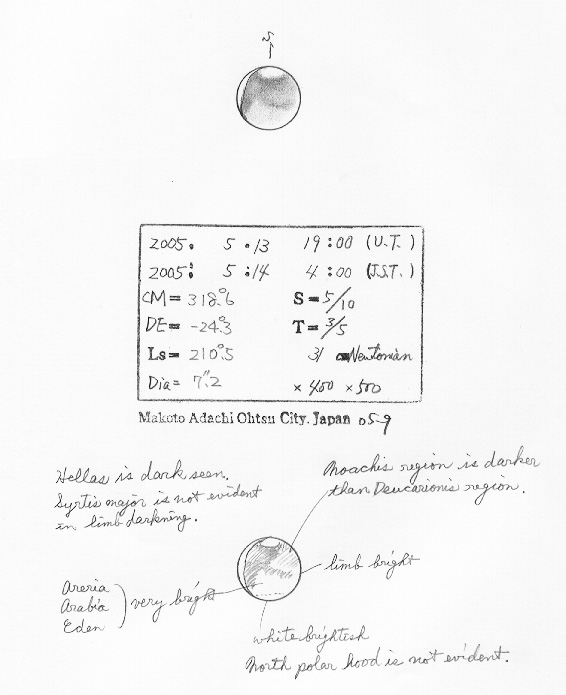 S
2005. 5 .13 19:00 (U.T.)
2005. 5 .14 4:00 (J.S.T.)
CM= 318.°6 S=5/10
DE= -24.°3 T=3/5
Ls= 210.°5 31 cm Newtonian
Dia= 7."2 ×400 ×500
Makoto Adachi Ohtsu City. Japan 05-9
Hellas is dark seen.
Syrtis major is not evident
in limb darkning.
Noachis region is darker
than Deucarionis region.
limb bright
Aeria
Arabia
Eden
very bright
white brightish
North polar hood is not evident.